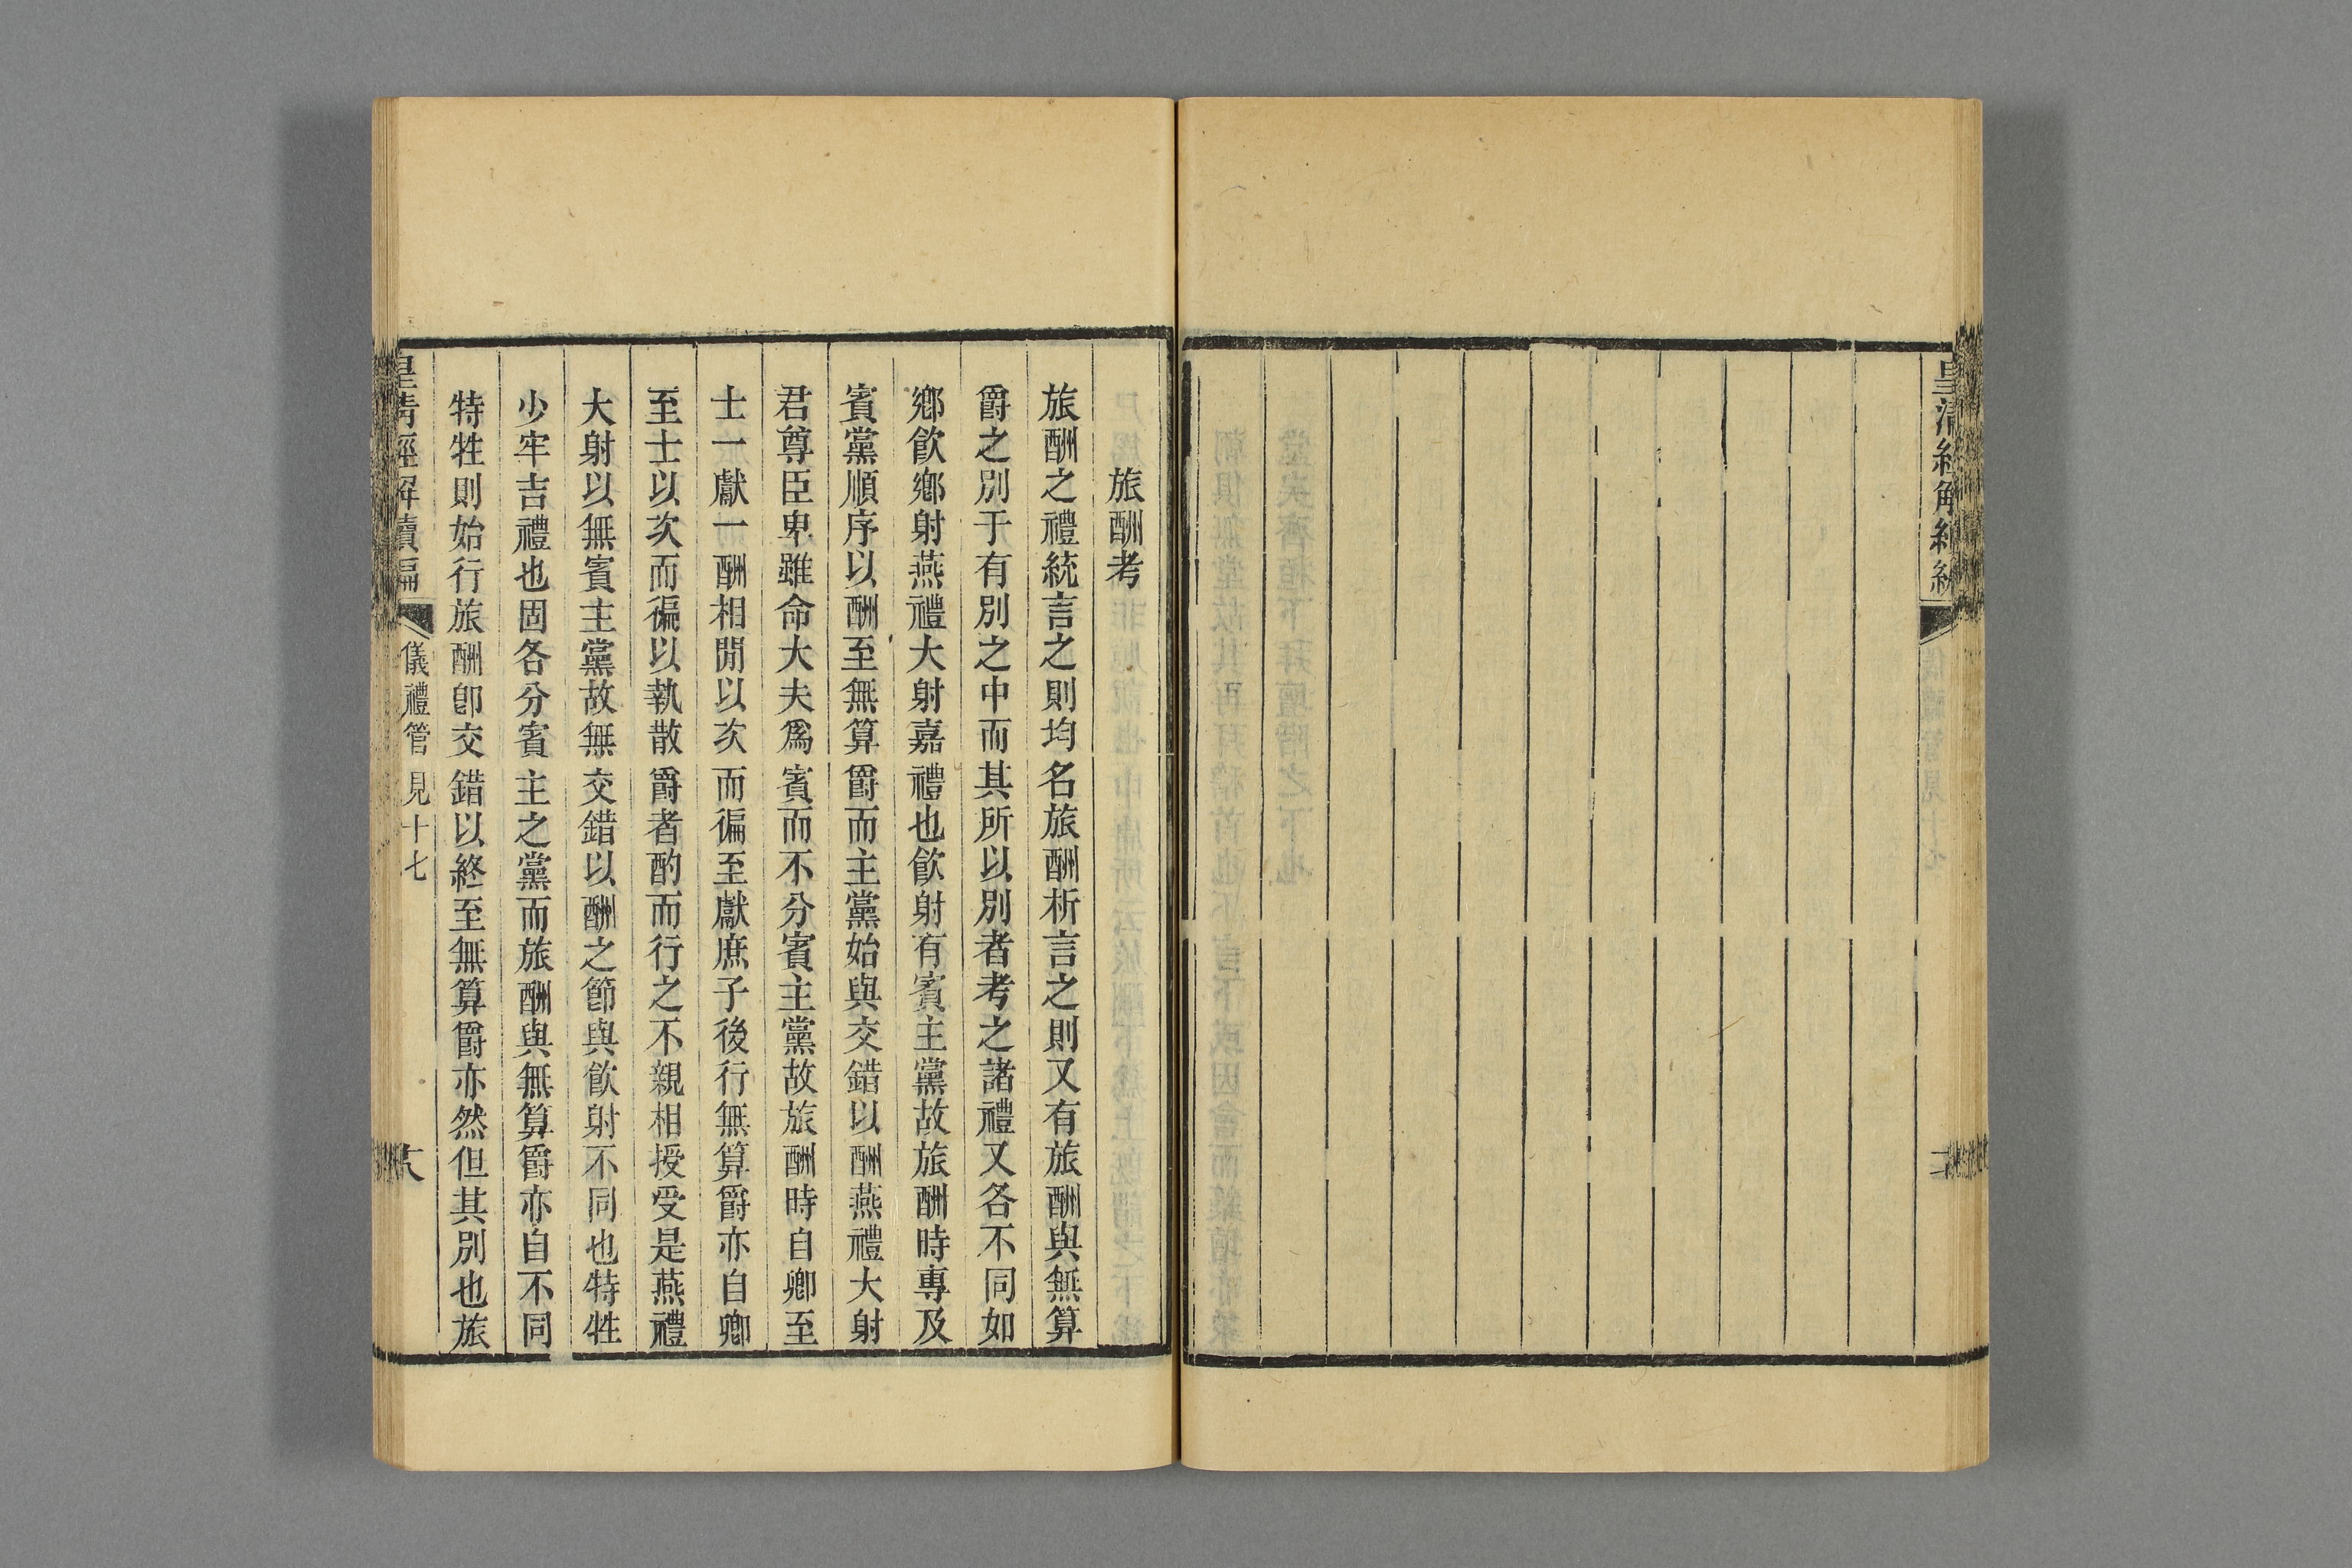 旅酬考
旅酬之禮統言之則均名旅酬析言之則又有旅酬與無算
爵之別于有別之中而其所以別者考之諸禮又各不同如
鄉飮鄉射燕禮大射嘉禮也飮射有賓主黨故旅酬時專及
賓黨順序以酬至無算爵而主黨始與交錯以酬燕禮大射
君尊臣卑雖命大夫爲賓而不分賓主黨故旅酬時自卿至
士一獻一酬相閒以次而徧至獻庶子後行無算爵亦自卿
至士以次而徧以執散爵者酌而行之不親相授受是燕禮
大射以無賓主黨故無交錯以酬之節與飮射不同也特牲
少牢吉禮也固各分賓主之黨而旅酬與無算爵亦自不同
特牲則始行旅酬卽交錯以終至無算爵亦然但其別也旅
皇清經解續編
儀禮管見十七